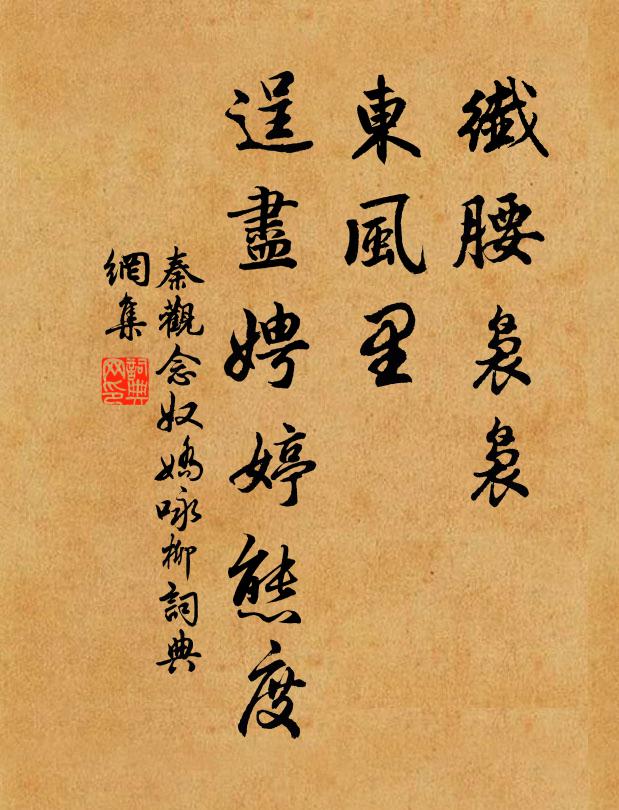 纖腰裊裊
東風里
逞盡娉婷態度
秦觀念奴嬌咏柳詞典
網集
詞典
网印